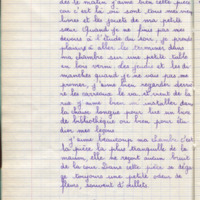 dès le matin j'aime bien cette pièce
car c'est là où sont tous mes
livres et les jouets de ma petite
sœur. Quand je ne finis pas mes
devoirs à l'étude du soir, je prends
plaisir à aller les terminer dans
ma chambre sur une petite table
en bois verni. Les jeudis et les di-
manches quand je ne vais pas me
promener, j'aime bien regarder derrière
les carreaux le va et vient de la
rue. J'aime bien m'installer dans
la chaise longue pour lire un livre
de bibliothèque ou bien pour étu-
dier mes leçons.
J'aime beaucoup ma chambre c'est
la pièce la plus tranquille de la
maison, elle ne reçoit aucun bruit
de la cour. Dans cette pièce se déga-
ge toujours une petite odeur de
fleurs, souvent d'œillets